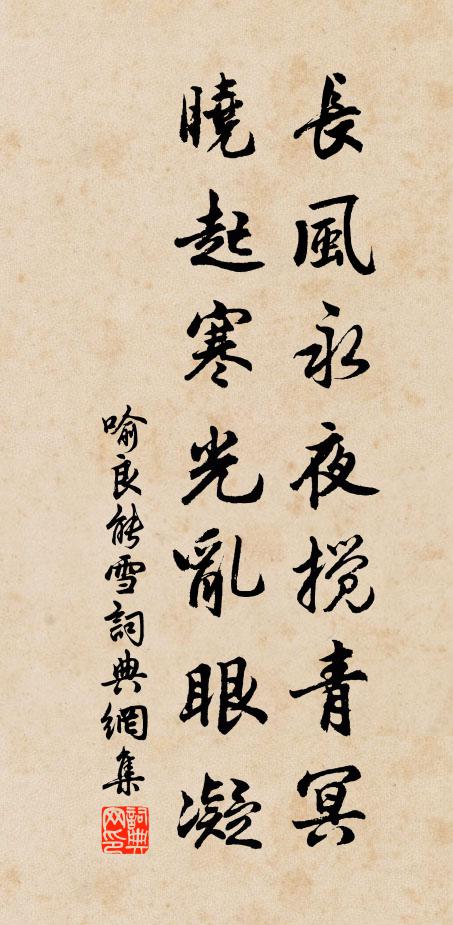 長風永夜攪青冥
曉起寒光亂眼凝
喻良能雪詞典網集
詞典网印